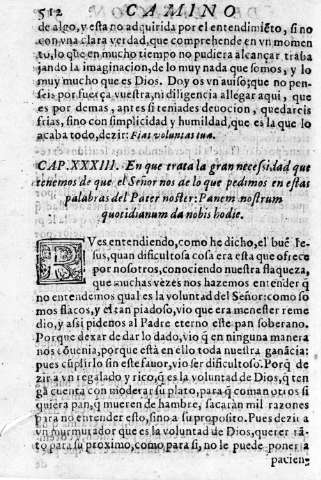 512 CAMINO
de algo, y esta no adquirida por el entendimiēto, si no
con vna clara verdad, que comprehende en vn momen
to, lo que en mucho tiempo no pudiera alcançar traba
jando la imaginacion, de lo muy nada que somos, y lo
muy mucho que es Dios. Doy os vn auiso; que no pen-
seis por fuerça vuestra, ni diligencia allegar aqui, que
es por demas, antes si teniades deuocion, quedareis
frias, sino con simplicidad y humildad, que es la que lo
acaba todo, dezir: Fiat voluntas tua.
CAP. XXXIII. En que trata la gran necessidad que
tenemos de que el Señor nos de lo que pedimos en estas
palabras del Pater noster: Panem nostrum
quotidianum da nobis hodie.
PVes entendiendo, como he dicho, el buē Ie-
sus, quan dificultosa cosa era esta que ofrece
por nosotros, conociendo nuestra flaqueza,
que muchas vezes nos hazemos entender q̄
no entendemos qual es la voluntad del Señor: como so
mos flacos, y el tan piadoso, vio que era menester reme
dio, y assi pidenos al Padre eterno este pan soberano.
Porque dexar de dar lo dado, vio q̄ en ninguna manera
nos cōuenia, porque està en ello toda nuestra ganācia:
pues cūplirlo sin este fauor, vio ser dificultoso. Porq̄ de
zir a vn regalado y rico, q̄ es la voluntad de Dios, q̄ ten
ga cuenta con moderar su plato, para q̄ coman otros si
quiera pan, q̄ mueren de hambre, sacaràn mil razones
para no entender esto, sino a su proposito. Pues dezir a
vn murmurador que es la voluntad de Dios, querer tā-
to para su proximo, como para si, no le puede poner a
pacien-